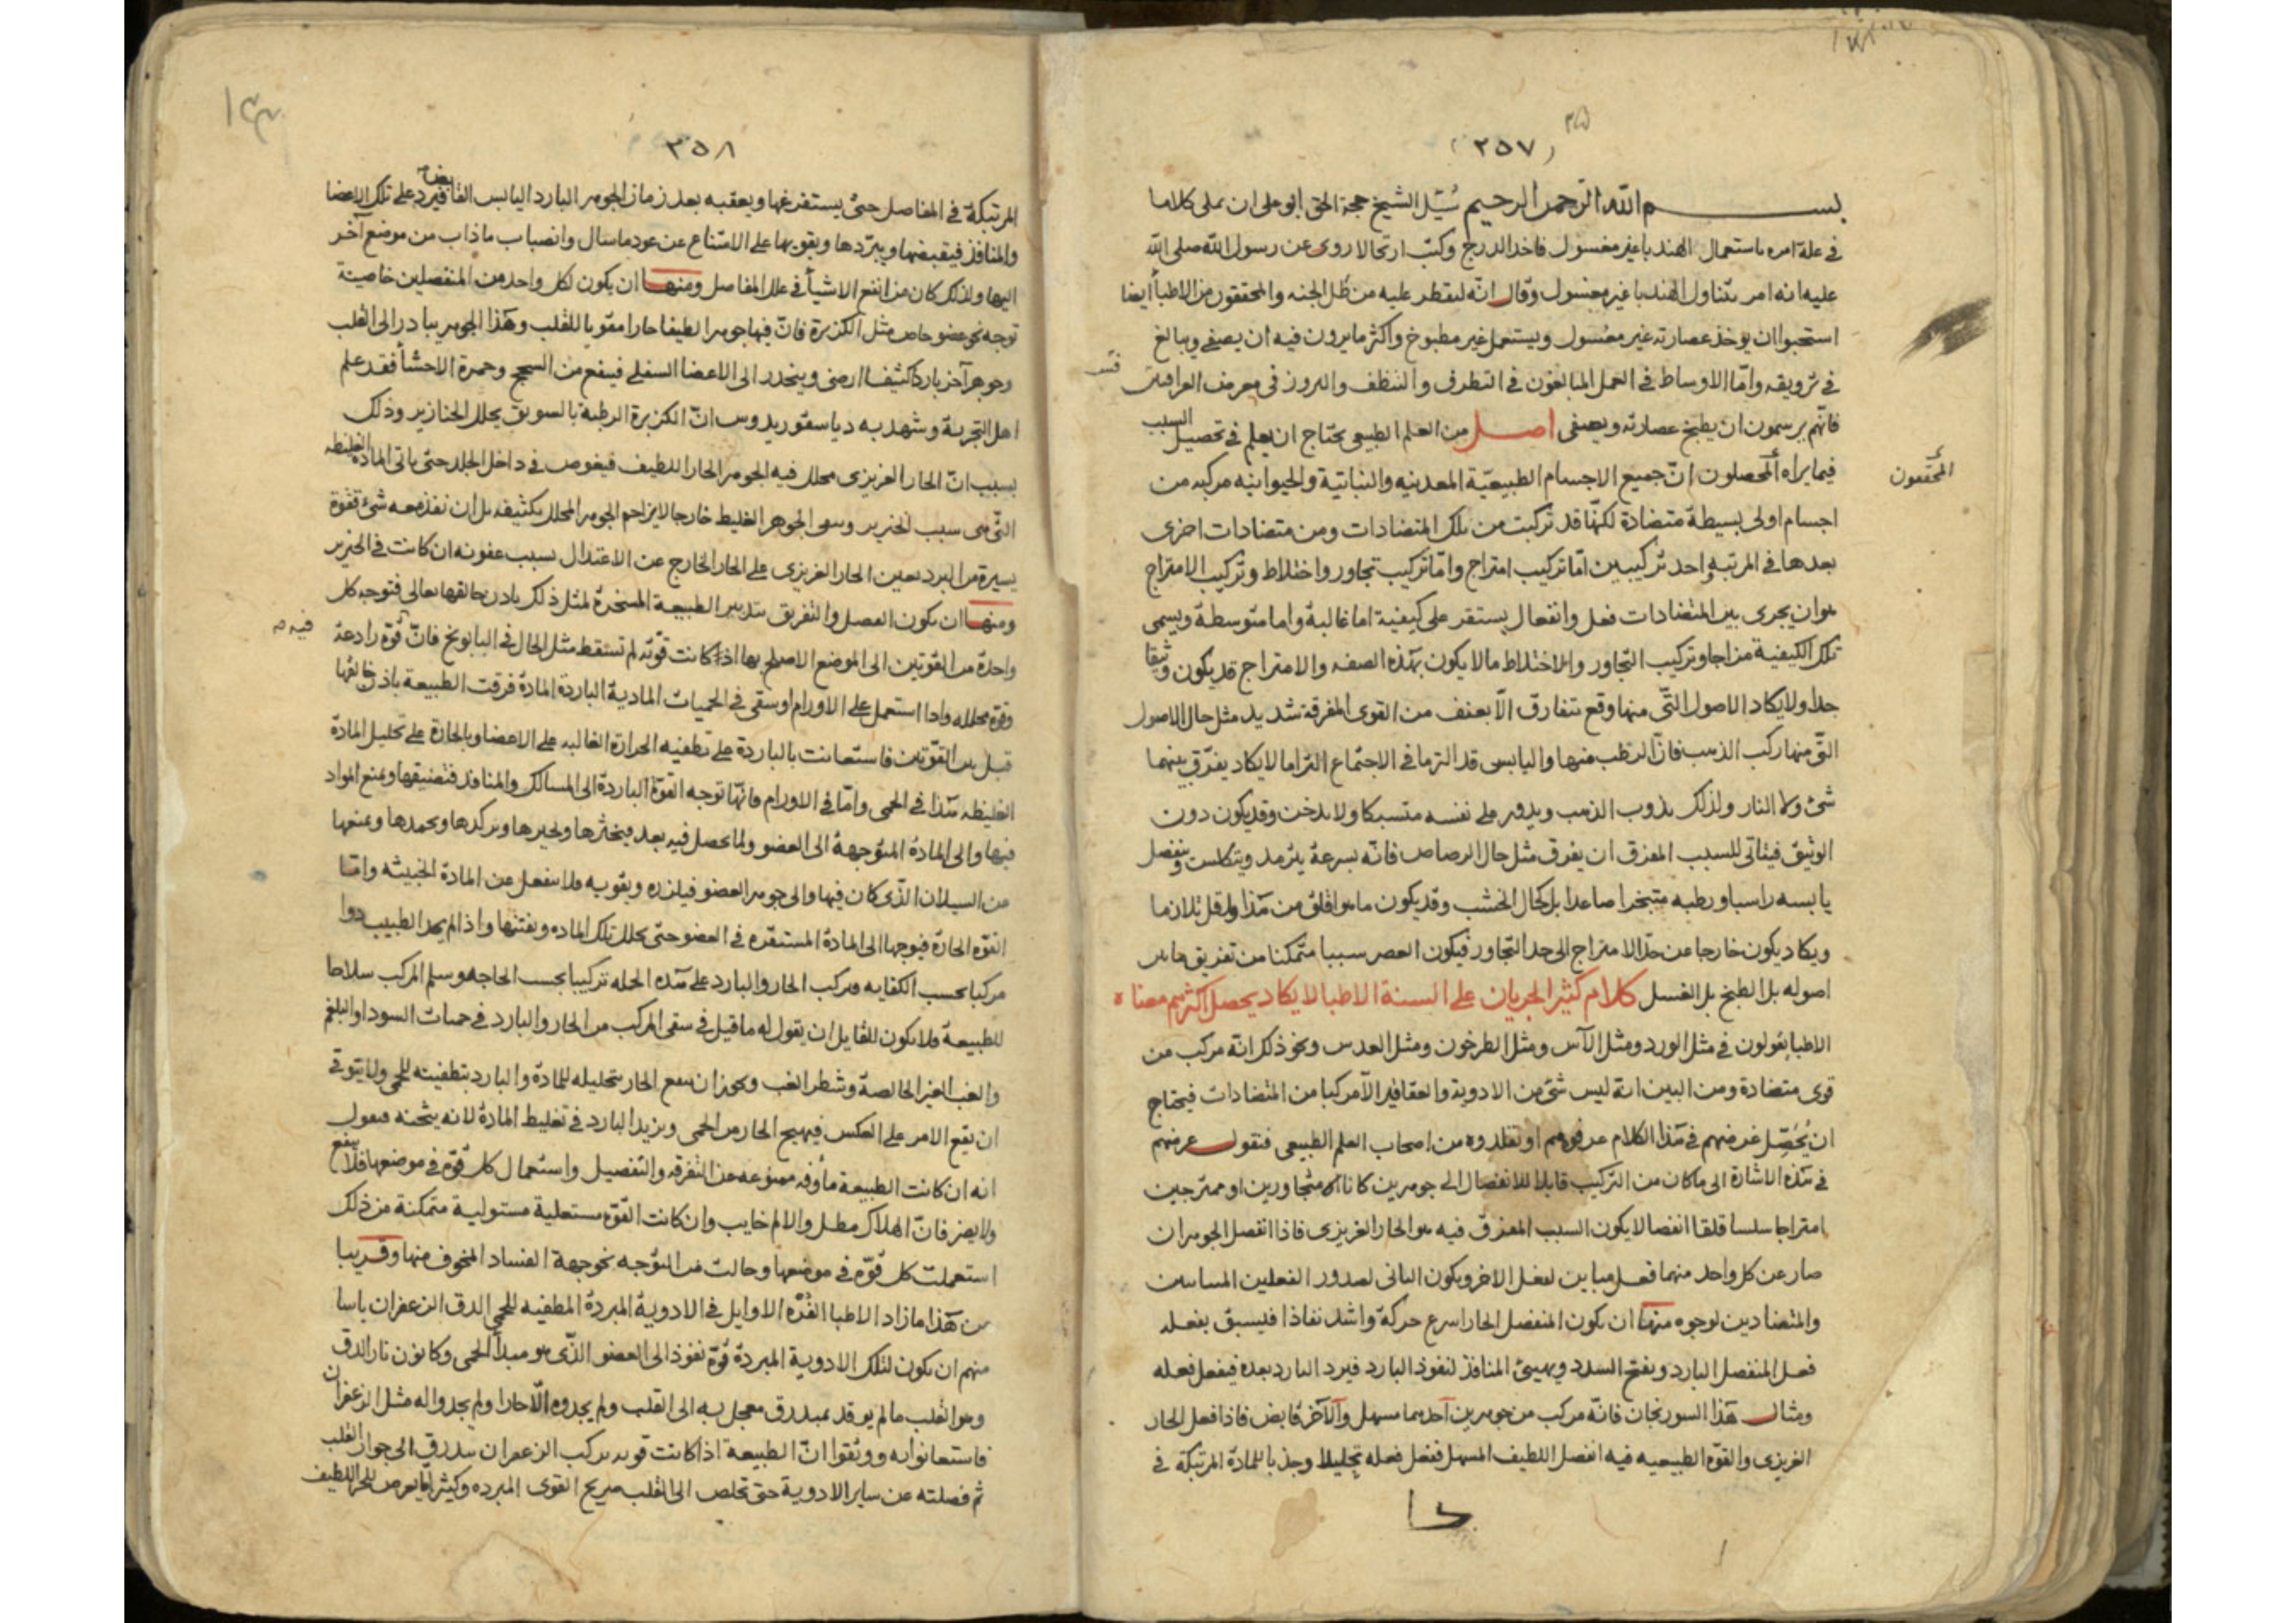 ٢٥٧
بسم الله الرحمن الرحيم سُئل الشيخ حجة الحق ابو على ان يملى كلاما
فى علة امره باستعمال الهندبا غير مغسول فاخذ الدرج وكتب ارتجالا روى عن رسول الله صلى الله
عليه انه امر بتناول الهندبا غير مغسول وقال انه ليقطر عليه من طَلّ الجنه والمحققون من الاطبا ايضا
استحبوا ان يوخذ عصارته غير مغسول ويستعمل غير مطبوخ واكثر ما يرون فيه ان يصفى ويبالغ
فى ترويقه وامّا الاوساط فى العمل المبالغون فى التطرف والتنظف والبروز فى معرض العراقيين
فانّهم يرسمون ان يطبخ عصارته ويصفى اصل من العلم الطبيعى يحتاج ان يعلم فى تحصيل السبب
المحققون
فيما يراه المحصلون انّ جميع الاجسام الطبيعيّة المعدنيه والنباتيّة والحيوانيه مركبه من
اجسام اولى بسيطة متضادة لكنّها قد تركبت من تلك المتضادات ومن متضادات اخرى
بعدها فى المرتبة احد تركيبين امّا تركيب امتزاج وامّا تركيب تجاور واختلاط وتركيب الامتزاج
هو ان يجرى بين المتضادات فعل وانفعال يستقر على كيفية اما غالبة واما متوسطة ويسمى
تلك الكيفية مزاجا وتركيب التجاور والاختلاط مالا يكون بهذه الصفه والامتزاج قد يكون وثيقا
جدا ولا يكاد الاصول التّى منها وقع تتفارق الّا بعنف من القوى المفرقة شديد مثل حال الاصول
التّى منها ركب الذهب فانّ الرطب منها واليابس قد التزما فى الاجتماع التزاما لا يكاد يفرّق بينهما
شئ ولا النار ولذلك يذوب الذهب ويدور على نفسه متسبكا ولا يدخن وقد يكون دون
الوثيق فيتأتى للسبب المفرق ان يفرق مثل حال الرصاص فانّه بسرعة يترمد ويتكلس وينفصل
يابسه راسبا ورطبه متبخرا صاعدا بل كحال الخشب وقد يكون ما هو اقلق من هذا واقل تلازما
ويكاد يكون خارجا عن حدّ الامتزاج الى حد التجاور فيكون العصر سببا متمكنا من تفريق ما بين
اصوله بل الطبخ بل الغسل كلام كثير الجريان على السنة الاطبا لا يكاد يحصل اكثرهم معناه
الاطبا يقولون فى مثل الورد ومثل الآس ومثل الطرخون ومثل العدس ونحو ذلك انّه مركب من
قوى متضادة ومن البين انّه ليس شئ من الادوية والعقاقير الّا مركبا من المتضادات فيحتاج
ان يُحَصّل غرضهم فى هذا الكلام عرفوهم او تقلدوه من اصحاب العلم الطبيعى فنقول غرضهم
فى هذه الاشارة الى ما كان من التركيب قابلا للانفصال الى جوهرين كانا متجاورين او ممتزجين
امتزاجا سلسا قلقا انفصالا يكون السبب المفرق فيه هو الحار الغريزى فاذا انفصل الجوهران
صار عن كل واحد منهما فعل مباين لفعل الاخر ويكون الباقى لصدور الفعلين المتباينين
والمتضادين لوجوه منها ان يكون المنفصل الحار اسرع حركة واشد نفاذا فيسبق بفعله
فعل المنفصل البارد ويفتح السدد ويهيئ المنافذ لنفوذ البارد فيرد البارد بعده فيفعل فعله
ومثال هذا السورنجان فانّه مركب من جوهرين احدهما مسهل والآخر قابض فاذا فعل الحار
الغريزى والقوة الطبيعيه فيه انفصل اللطيف المسهل ففعل فعله تحليلا وجذبا للمادة المرتبكة فى
٣٥٨
المرتبكة فى المفاصل حتى يستفرغها ويعقبه بعد زمان الجوهر البارد اليابس القابض فيرد على تلك الاعضا
والمنافذ فيقبضها ويبرّدها ويقويها على الامتناع عن عود ما سال وانصباب ما ذاب من موضع آخر
اليها ولذلك كان من انفع الاشيأ فى علل المفاصل ومنها ان يكون لكل واحد من المنفصلين خاصية
توجه نحو عضو خاص مثل الكزبرة فانّ فيها جوهرا لطيفا حارا مقويا للقلب وهذا الجوهر يبادر الى القلب
وجوهر آخر باردا كثيفا ارضى وينحدر الى الاعضا السفلى فينفع من السحج وحمرة الاحشأ فقد علم
اهل التجربة وشهد به دياسقوريدوس انّ الكزبرة الرطبة بالسويق يحلل الخنازير وذلك
بسبب انّ الحار الغريزى محلل فيه الجوهر الحار اللطيف فيغوص فى داخل الجلد حتى ياتى المادة الغليظه
التّى هى سبب الخنزير وسقى الجوهر الغليظ خارجا لا يزاحم الجوهر المحلل بكثيفه بل ان نفذ معه شئ فقوة
يسيرة من البرد يعين الحار الغريزى على الحار الخارج عن الاعتدال بسبب عفونه ان كانت فى الخنزير
ومنها ان يكون الفصل والتفريق بتدبير الطبيعة المسخرة لمثل ذلك باذن خالقها تعالى فتوجه كل
واحدة من القوتين الى الموضع الاصلح بها اذا كانت قوّته لم تسقط مثل الحال فى البابونج فانّ فيه قوّة رادعة
وقوة محلله واذا استعمل على الاورام او سقى فى الحميات المادية الباردة المادة فرقت الطبيعة باذن خالقها
قبل بين القوّتين فاستعانت بالباردة على تطفيه الحرارة الغالبه على الاعضا وبالحارة على تحليل المادّة
الغليظه هذا فى الحمى وامّا فى الاورام فانّها توجه القوة الباردة الى المسالك والمنافذ فتضيقها ويمنع المواد
فيها والى المادة المتوجهة الى العضو ولما يحصل فيه بعد فيخثرها ويحيرها ويركدها ويجمدها ويمنعها
من السيلان الذّى كان فيها والى جوهر العضو فيلززه ويقويه فلا ينفعل عن المادة الخبيثه وامّا
القوة الحارّة فيوجها الى المادة المستقره فى العضو حتى يحلل تلك الماده ويفتنها واذا لم يجد الطبيب دوا
مركبا بحسب الكفايه فركب الحار والبارد على هذه الجمله تركيبا بحسب الحاجه وسلم المركب سلاحا
للطبيعة فلا يكون للقايل ان يقول له ما قيل فى سقى المركب من الحار والبارد فى حميات السودا والبلغم
والغب الغير الخالصة وشطر الغب ويجوز ان ينفع الحار بتحليله للمادة والبارد بتطفيته للحمى ولا يتوقى
ان يقع الامر على العكس فيهيج الحار من الحمى ويزيد البارد فى تغليظ المادة لانه يثخنه فيقول
انه ان كانت الطبيعة مأوفه ممنوعه عن التفرقه والتفصيل واستعمال كل قوّة فى موضعها فلا ينفع
ولا يضر فانّ الهلاك مطل والالم خايب وان كانت القوّة مستعلية مستولية متمكنة من ذلك
استعملت كل قوّة فى موضعها وحالت من التوجه نحو جهة الفساد المخوف منها وقريبا
من هذا ما زاد الاطبا القُرّه الاوايل فى الادوية المبردة المطفيه للحمى الدق الزعفران ياسا
منهم ان يكون لتلك الادوية المبردة قوّة نفوذ الى العضو الذّى هو مبدأ الحمى وكانون نار الدق
وهو القلب ما لم يوقد بمبذرق معجل به الى القلب ولم يجدوه الّا حارا ولم يجدوا له مثل الزعفران
فاستعانوا به ووثقوا انّ الطبيعة اذا كانت قويه تركب الزعفران يبدرق الى جوار القلب
ثم فصلته عن ساير الادوية حتى تخلص الى القلب صريح القوى المبرده وكثيرا ما يعرض للحار اللطيف